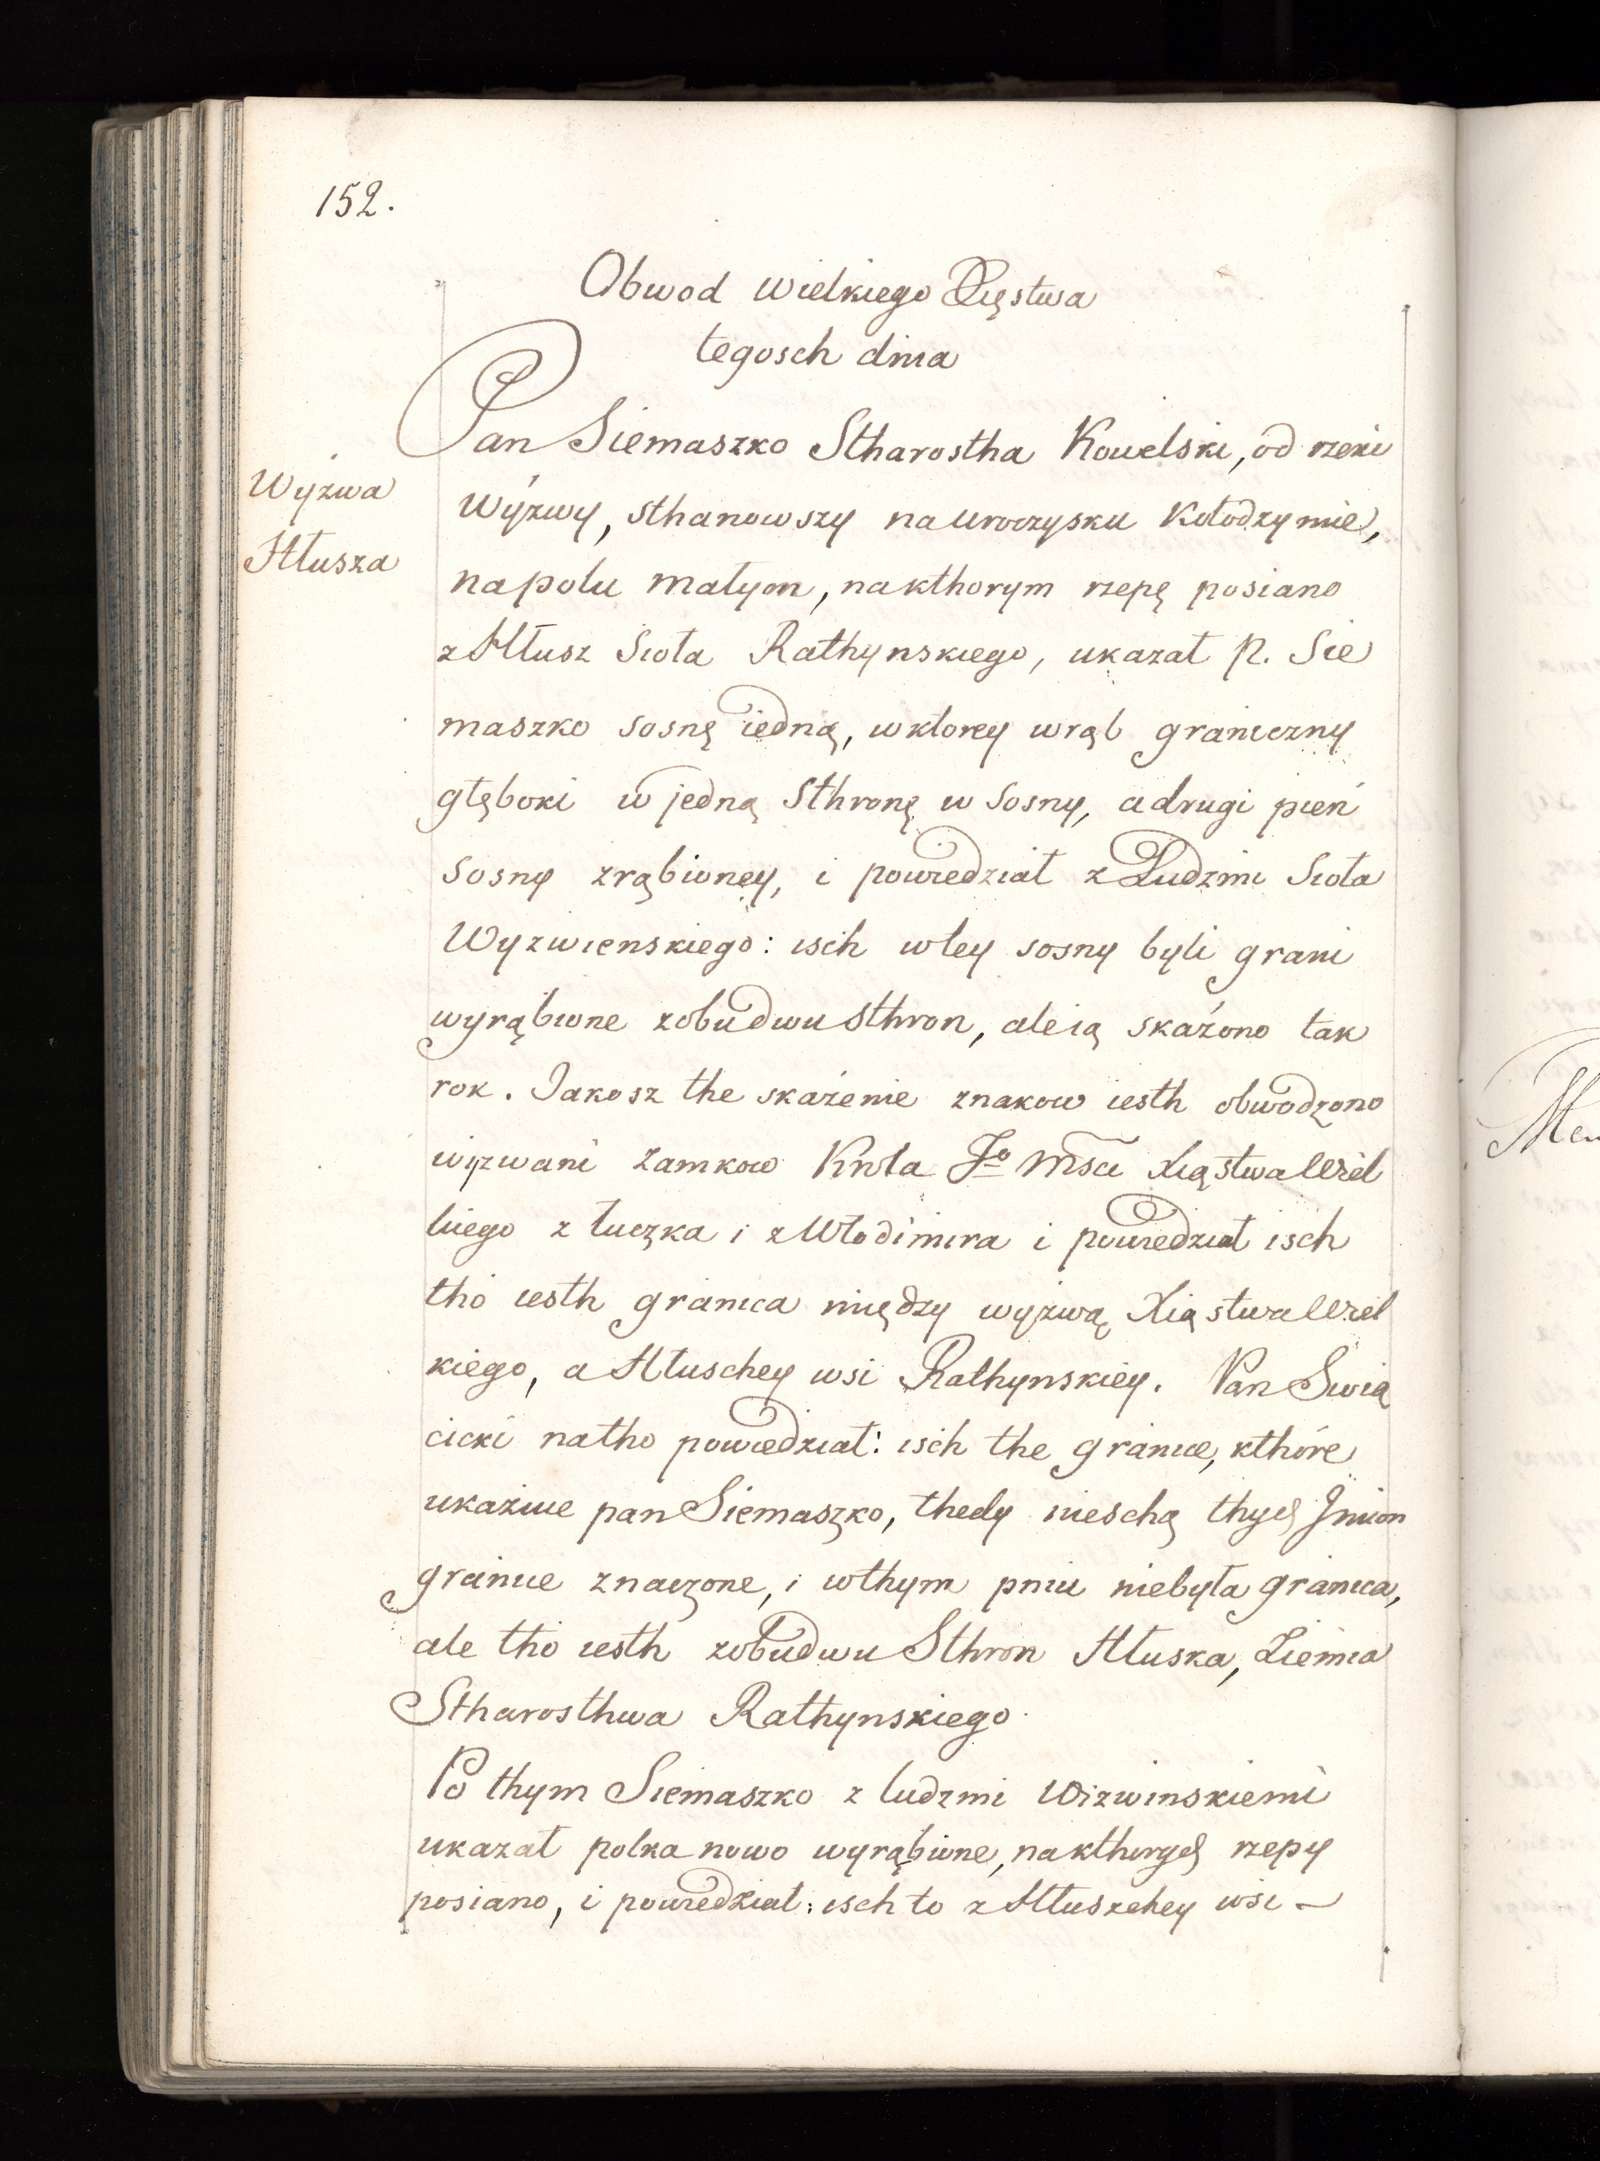 152.
Obwod wielkiego Xięstwa
tegosch dnia
Pan Siemaszko Stharostha Kowelski, od rzeki
Wyżwa
Wyżwy, sthanowszy na uroczysku Kołodzymie,
Hłusza
na polu małym, na kthorym rzepę posiano
z Hłusz Sioła Rathynskiego, ukazał p. Sie
maszko sosnę iedną, w ktorey wrąb graniczny
głęboki w jedną Sthronę w Sosny, a drugi pień
sosny zrąbioney, i powiedział z Ludzmi Sioła
Wyzwienskiego: isch w tey sosny byli grani
wyrąbione z obudwu sthron, ale ią skażono tak
rok. Jakosz the skażenie znakow iesth obwodzono
wyzwani zamkow Krola Jo Mści Xięstwa Wiel
kiego z Łuczka i z Włodimira i powiedział isch
tho iesth granica między wyżwą Xięstwa Wiel
kiego, a Hłuschey wsi Rathynskiey. Pan Swią
cicki natho powiedział: isch the granice, kthóre
ukazuie pan Siemaszko, thedy nieschą thych Jmion
granice znaczone, i wthym pniu niebyła granica,
ale tho iesth zobudwu Sthron Hłuska, Ziemia
Stharosthwa Rathynskiego.
Po thym Siemaszko z ludzmi Wizwinskiemi
ukazał polka nowo wyrąbione, na kthorych rzepy
posiano, i powiedział: isch to z Hłuszchey wsi –